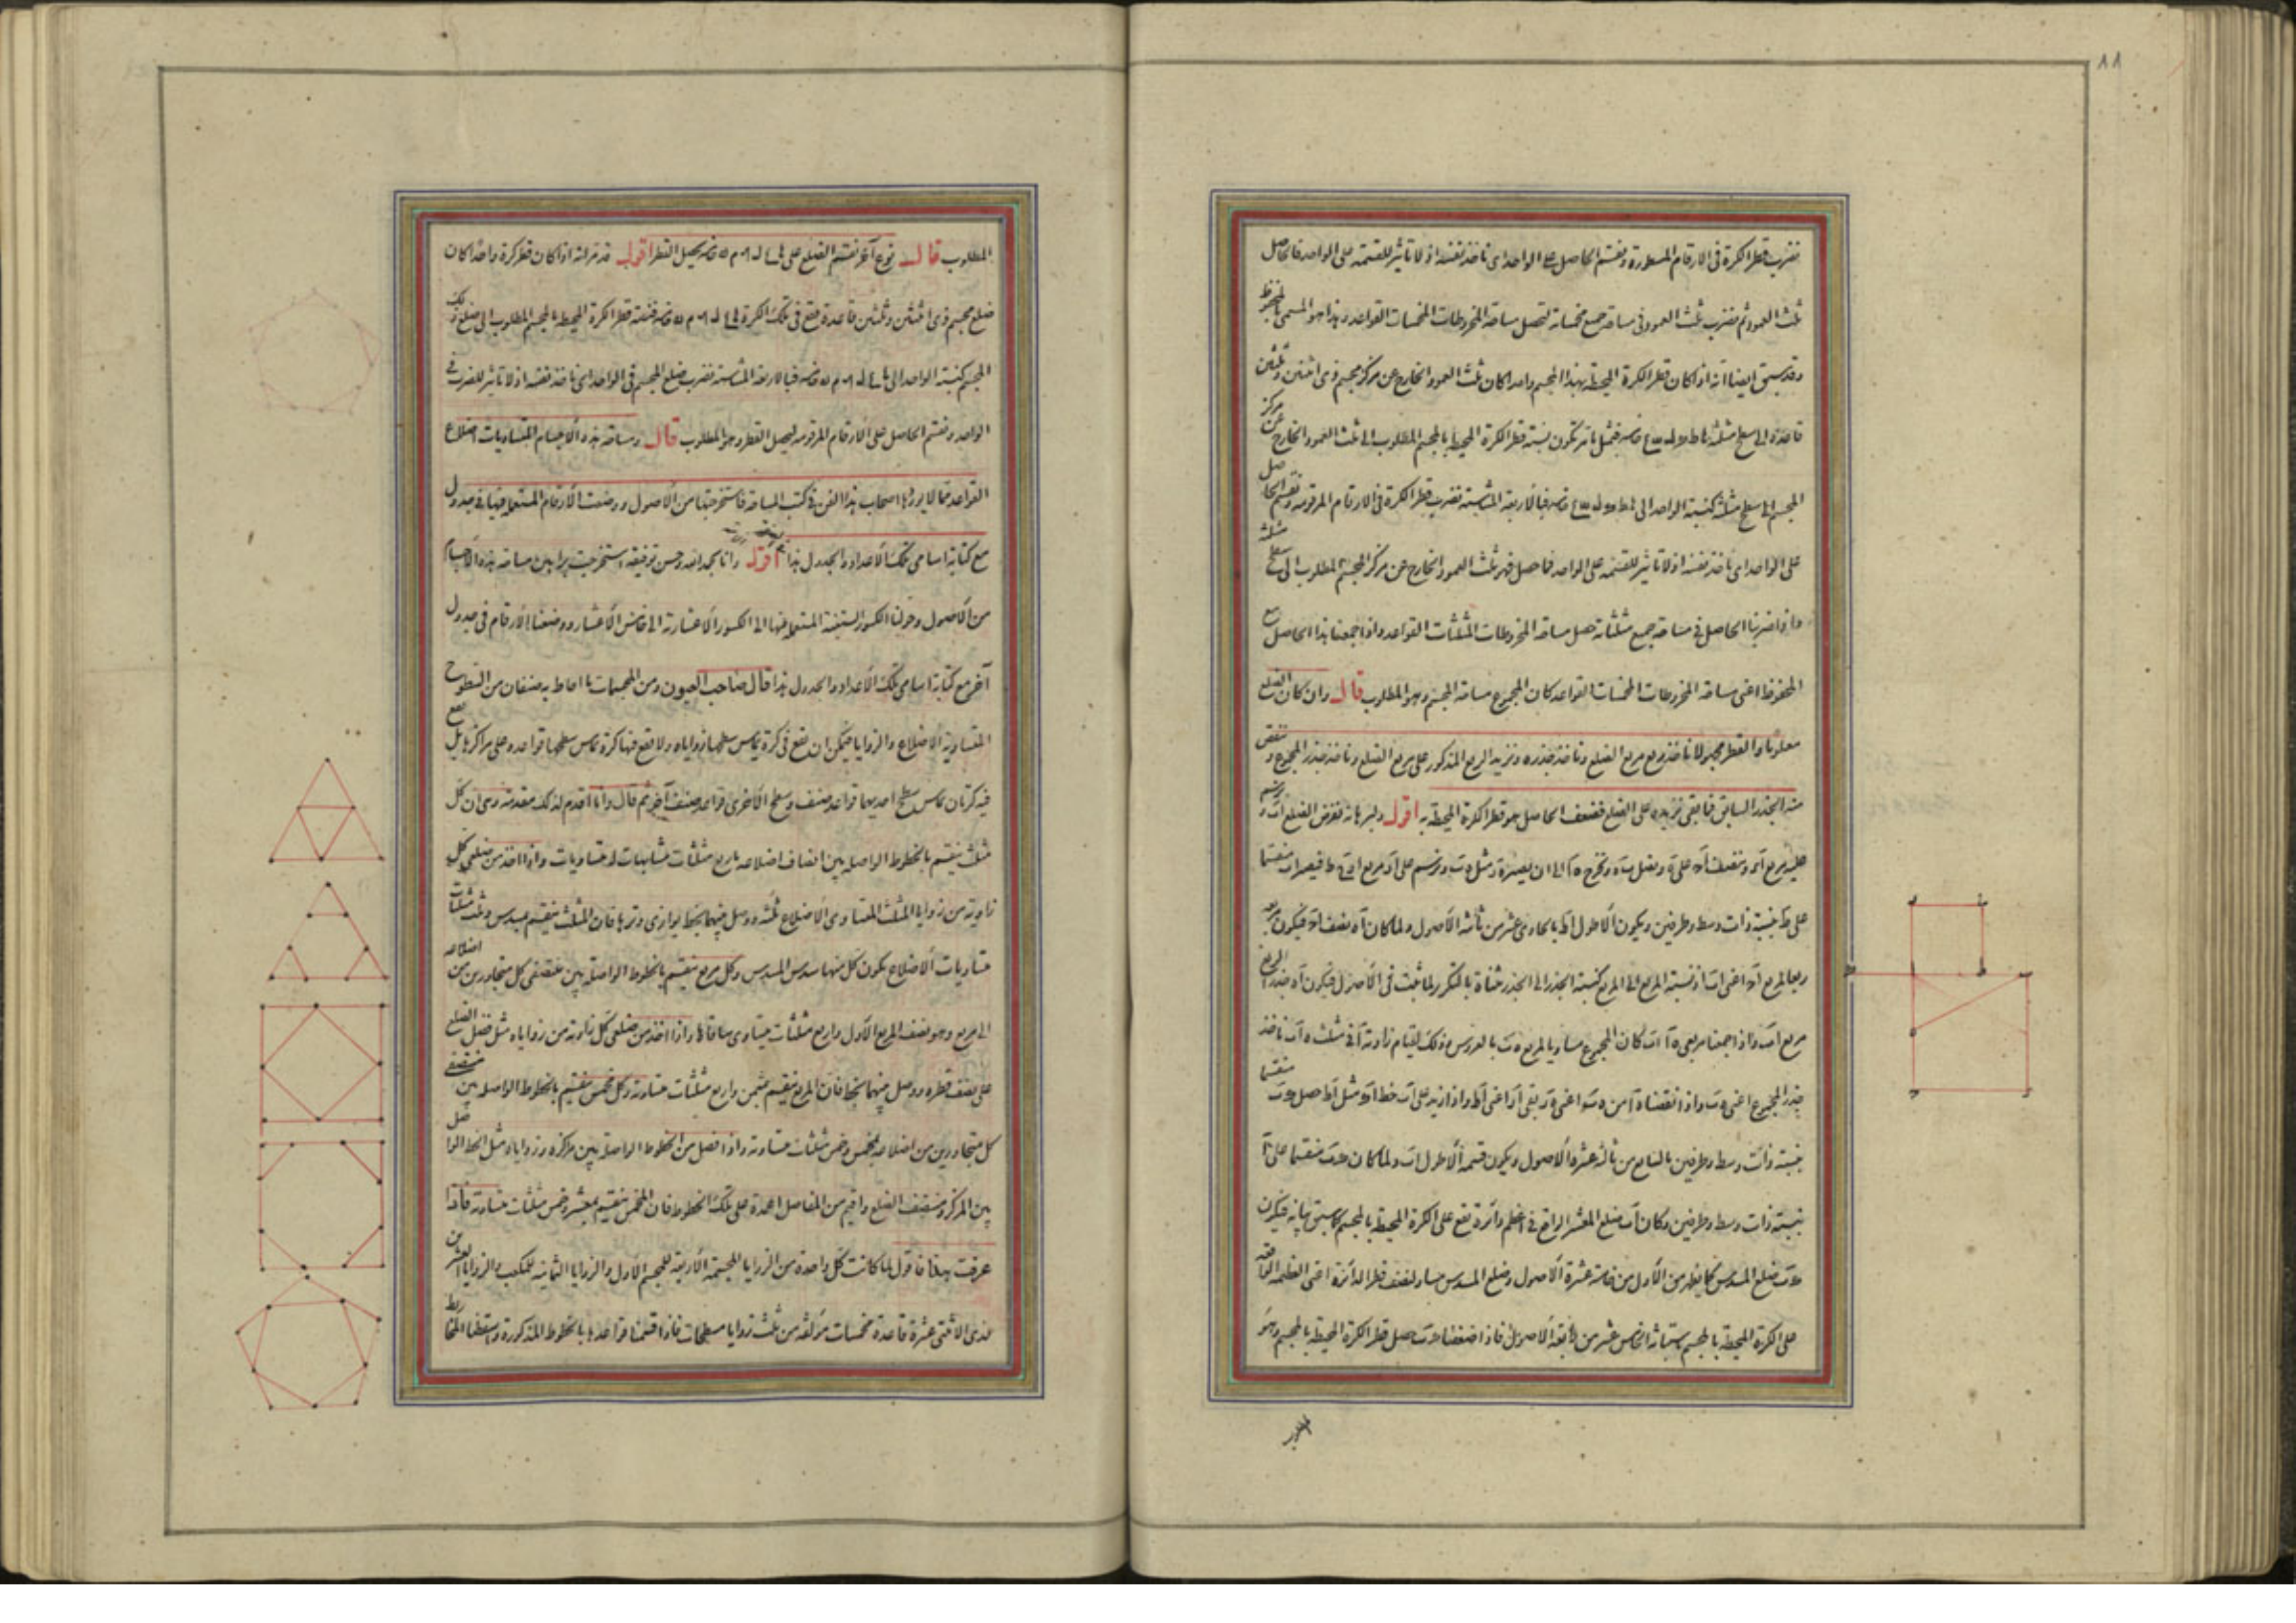 ٨٨
نضرب قطر الكرة فى الارقام المسطورة ونقسم الحاصل على الواحد اى ناخذ نفسه اذ لا تاثير للقسمة على الواحد فالحاصل
ثلث العمود ثم نضرب ثلث العمود فى مساحة جميع مخمساته لتحصل مساحة المخروطات المخمسات القواعد وهذا هو المسمى بالمحفوظ
وقد سبق ايضا انه اذا كان قطر الكرة المحيطة بهذا المجسم واحدا كان ثلث العمود الخارج عن مركز مجسم ذى اثنتين وثلثين
قاعدة الى سطح مثلثه فتكون نسبة قطر الكرة المحيطة بالمجسم المطلوب الى ثلث العمود الخارج عن مركز
المجسم الى سطح مثلثه كنسبة الواحد الى فبالاربعة المتناسبة نضرب قطر الكرة فى الارقام المرقومة ونقسم الحاصل
على الواحد اى ناخذ نفسه اذ لا تاثير للقسمة على الواحد فما حصل فهو ثلث العمود الخارج عن مركز المجسم المطلوب الى سطح مثلثه
واذا ضربنا الحاصل فى مساحة جميع مثلثاته حصل مساحة المخروطات المثلثات القواعد واذا جمعنا هذا الحاصل مع
المحفوظ اعنى مساحة المخروطات المخمسات القواعد كان المجموع مساحة المجسم وهو المطلوب قال وان كان الضلع
معلوما والقطر مجهولا ناخذ ربع مربع الضلع وناخذ جذره ونزيد الربع المذكور على مربع الضلع وناخذ جذر المجموع وننقص
منه الجذر السابق فما بقى نزيده على الضلع فضعف الحاصل هو قطر الكرة المحيطة به اقول وليبرهانه نفرض الضلع اب ونرسم
عليه مربع اج وننصف اد على ه ونصل ب ه ونخرج ه ا الى ان يصير ه ر مثل ه ب ونرسم على ار مربع فيصير اب منقسما
على ط بنسبة ذات وسط وطرفين ويكون الاطول اط بالحادى عشر من ثانية الاصول ولما كان اه نصف اد فيكون مربعه
ربعا لمربع اد اعنى اب اذ نسبة المربع الى المربع كنسبة الجذر الى الجذر مثناة بالتكرير لما ثبت فى الاصول فيكون اه جذر الربع
مربع اب واذا جمعنا مربعى ه ا اب كان المجموع مساويا لمربع ه ب بالعروس وذلك لقيام زاوية ا فى مثلث ه اب ناخذ
جذر المجموع اعنى ه ب واذا نقصنا ه ا من ه ب اعنى ه ر بقى ار اعنى اط واذا زيد على اب خط اح مثل اط حصل ح ب منقسما
بنسبة ذات وسط وطرفين بالسابع من ثالثة عشر الاصول ويكون قسمه الاطول اب ولما كان ح ب منقسما على ا
بنسبة ذات وسط وطرفين وكان اب ضلع المعشر الواقع فى اعظم دائرة تقع على الكرة المحيطة بالمجسم كما سبق بيانه فيكون
ح ب ضلع المسدس كما يظهر من الاول من ثالثة عشرة الاصول وضلع المسدس مساو لنصف قطر الدائرة اعنى العظيمة الواقعة
على الكرة المحيطة بالمجسم باستبانة الخامس عشر من رابعة الاصول فاذا ضعفنا ح ب حصل قطر الكرة المحيطة بالمجسم وهو
المطلوب
المطلوب قال نوع آخر نقسم الضلع على ليحصل القطر اقول قد مر انه اذا كان قطر كرة واحدا كان
ضلع مجسم ذى اثنتين وثلثين قاعدة تقع فى تلك الكرة فنسبة قطر الكرة المحيطة بالمجسم المطلوب الى ضلع ذلك
المجسم كنسبة الواحد الى فبالاربعة المتناسبة نضرب ضلع المجسم فى الواحد اى ناخذ نفسه اذ لا تاثير للضرب فى
الواحد ونقسم الحاصل على الارقام المرقومة ليحصل القطر وهو المطلوب قال ومساحة هذه الاجسام المتساويات اضلاع
القواعد مما لا يوردها اصحاب هذا الفن فى كتب المساحة فاستخرجتها من الاصول ووضعت الارقام المستعملة فيها فى جدول
مع كتابة اسامى تلك الاعداد والجدول هذا اقول وانا بحمد الله وحسن توفيقه استخرجت براهين مساحة هذه الاجسام
من الاصول وحولنا الكسور الستينية المستعملة فيها الى الكسور الاعشارية الى خامس الاعشار ووضعنا الارقام فى جدول
آخر مع كتابة اسامى تلك الاعداد والجدول هذا قال صاحب العيون ومن المجسمات ما احاط به صنفان من السطوح
المتساوية الاضلاع والزوايا فيمكن ان تقع فى كرة يماس سطحها زواياه ولا تقع فيها كرة يماس سطحها قواعده على مراكزها بل تقع
فيه كرتان يماس سطح احديهما قواعد صنف وسطح الاخرى قواعد صنف آخر ثم قال وانا اقدم لذلك مقدمة وهى ان كل
مثلث ينقسم بالخطوط الواصلة بين انصاف اضلاعه باربع مثلثات متشابهات له متساويات واذا اخذ من ضلعى كل
زاوية من زوايا المثلث المتساوى الاضلاع ثلثه ووصل بينهما بخط يوازى وترها فان المثلث ينقسم بمسدس وثلث مثلثات
متساويات الاضلاع يكون كل منها سدس المسدس وكل مربع ينقسم بالخطوط الواصلة بين منتصفى كل متجاورين من اضلاعه
الى مربع وهو نصف المربع الاول واربع مثلثات متساوى ساقاها واذا اخذ من ضلعى كل زاوية من زواياه مثل فضل الضلع
على نصف قطره ووصل بينهما بخط فان المربع ينقسم بمثمن واربع مثلثات متساوية وكل مخمس ينقسم بالخطوط الواصلة بين منتصفى
كل متجاورين من اضلاعه بمخمس وخمس مثلثات متساوية واذا فصل من الخطوط الواصلة بين مركزه وزواياه مثل الخط الواصل
بين المركز ومنتصف الضلع واقيم من المفاصل اعمدة على تلك الخطوط فان المخمس ينقسم بمعشر وخمس مثلثات متساوية فاذا
عرفت هذا فاقول لما كانت كل واحدة من الزوايا المجسمة الاربعة للمجسم الاول والزوايا الثمانية للمكعب والزوايا العشرين
لذى الاثنتى عشرة قاعدة مخمسات مؤلفة من ثلث زوايا مسطحات فاذا قسمنا قواعدها بالخطوط المذكورة واسقطنا